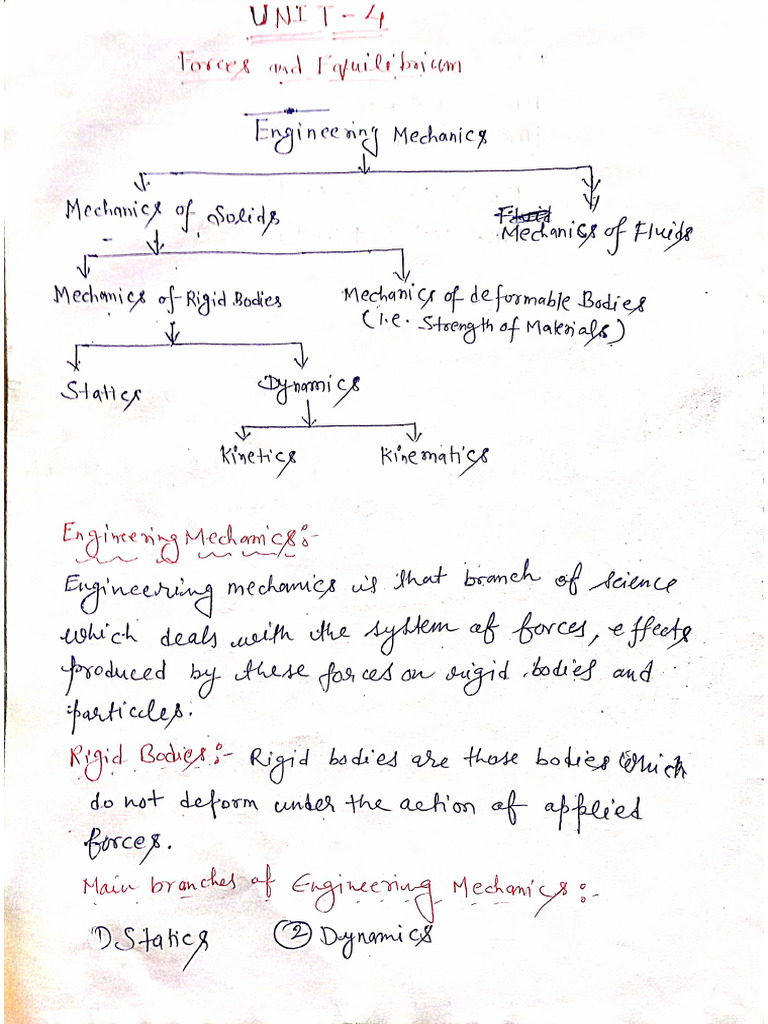 UNIT-4
Forces and Equilibrium
Engineering Mechanics
Mechanics of Solids
Fluid
Mechanics of Fluids
Mechanics of Rigid Bodies
Mechanics of deformable Bodies
(i.e. Strength of Materials)
Statics
Dynamics
Kinetics
Kinematics
Engineering Mechanics:-
Engineering mechanics is that branch of science
which deals with the system of forces, effects
produced by these forces on rigid bodies and
particles.
Rigid Bodies:- Rigid bodies are those bodies which
do not deform under the action of applied
forces.
Main branches of Engineering Mechanics:-
1) Statics ② Dynamics